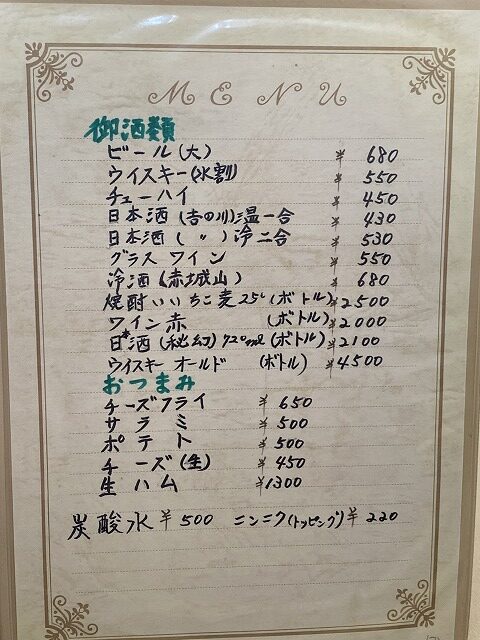 MENU
御酒類
ビール(大) ¥ 680
ウイスキー(水割) ¥ 550
チューハイ ¥ 450
日本酒(吉の川)温一合 ¥ 430
日本酒( 〃 )冷二合 ¥ 530
グラスワイン ¥ 550
冷酒(赤城山) ¥ 680
焼酎いいちこ麦25°(ボトル) ¥2500
ワイン赤 (ボトル) ¥2000
日本酒(秘幻)720ml(ボトル) ¥2100
ウイスキーオールド (ボトル) ¥4500
おつまみ
チーズフライ ¥ 650
サラミ ¥ 500
ポテト ¥ 500
チーズ(生) ¥ 450
生ハム ¥1300
炭酸水 ¥500 ニンニク(トッピング) ¥220